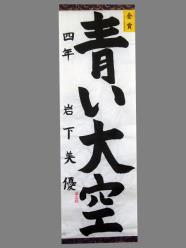 金賞
青い大空
四年 岩下美優